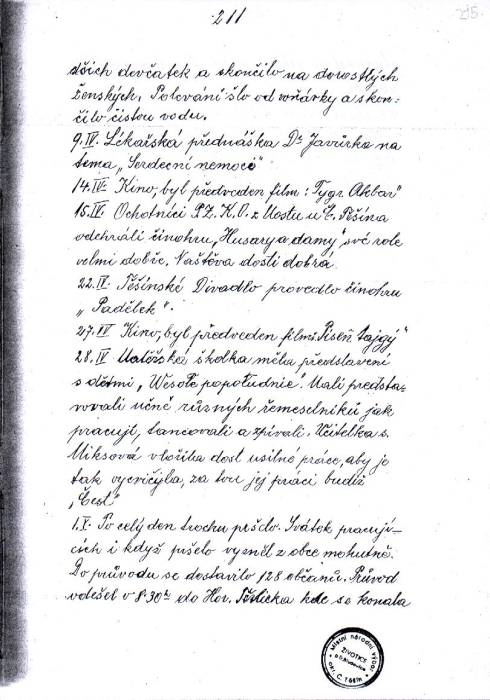 211
215.
dších děvčatek a skončilo na dorostlých
ženských. Polevání šlo od voňárky a skon-
čilo čistou vodu.
9.IV. Lékařská přednáška Dr Javůrka na
tema „Serdeční nemoce“
14.IV. Kino, byl předveden film: Tygr Akbar“
15.IV. Ochotníci P.Z.K.O. z Mostu u Č. Těšína
odehráli činohru „Husary a damy“ své role
velmi dobře. Naštěva dosti dobrá.
22.IV. Těšínské Divadlo provedlo činohru
„Padělek“.
27.IV Kino, byl předveden film: Píseň tajgý“
28.IV Mateřská školka měla představení
s dětmi „Wesołe popołudnie“. Malí predsta-
vovali učně různých řemeselníků jak
pracují, tancovali a zpívali. Učitelka s.
Miksová vložila dost usilné práce, aby je
tak vycvičila, za tvu jej práci budiž
„Čest“
1.V. Po celý den trochu pršelo. Svátek pracují-
cích i když pršelo vyzněl z obce mohutně.
Do průvodu se dostavilo 128 občanů. Průvod
odešel v 8.30h do Hor. Těrlicka kde se konala
Místní národní výbor
ŽIVOTICE
okr. Č. Těšín